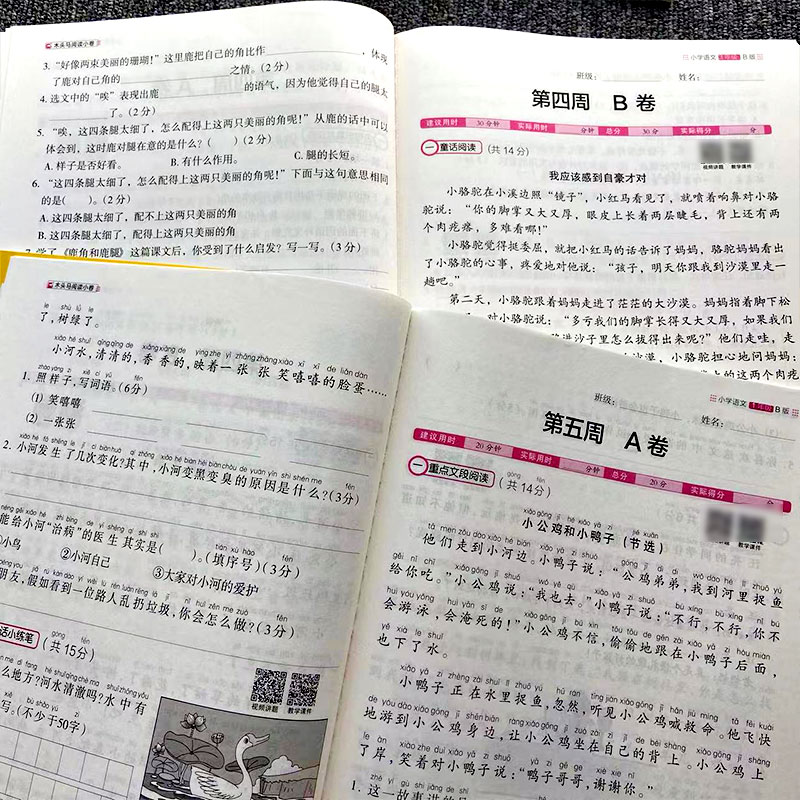 木头马阅读小卷
3. “好像两束美丽的珊瑚!”这里鹿把自己的角比作，体现
了鹿对自己角的之情。(2分)
4. 选文中的“唉”表现出鹿的语气，因为他觉得自己的腿太
了。(2分)
5. “唉，这四条腿太细了，怎么配得上这两只美丽的角呢!”从鹿的话中可以
体会到，这时鹿对腿在意的是什么?(　)(2分)
A. 样子是否好看。 B. 有什么作用。 C. 腿的长短。
6. “这四条腿太细了，怎么配得上这两只美丽的角呢!”下面与这句意思相同
的是(　)。(2分)
A. 这四条腿太细了，配不上这两只美丽的角
B. 这四条腿太细了，配得上这两只美丽的角
7. 学了《鹿角和鹿腿》这篇课文后，你受到了什么启发?写一写。(3分)
小学语文 1年级 B版
班级: 姓名:
第四周 B卷
建议用时 30分钟 实际用时 分钟 总分 30分 实际得分 分
一 童话阅读 (共14分)
视频讲题 教学课件
我应该感到自豪才对
小骆驼在小溪边照“镜子”，小红马看见了，就喷着响鼻对小骆
驼说:“你的脚掌又大又厚，眼皮上长着两层睫毛，背上还有两
个肉疙瘩，多难看哪!”
小骆驼觉得挺委屈，就把小红马的话告诉了妈妈，骆驼妈妈看出
了小骆驼的心事，疼爱地对他说:“孩子，明天你跟我到沙漠里走一
趟吧。”
第二天，小骆驼跟着妈妈走进了茫茫的大沙漠。妈妈指着脚下松
对小骆驼说:“多亏我们的脚掌长得又大又厚，如果我们
进沙子里怎么拔得出来呢?”他们走哇，走
沙漠，小骆驼担心地问妈妈:
上的这两个肉疙
木头马阅读小卷
了，树绿了。
小河水，清清的，香香的，映着一张张笑嘻嘻的脸蛋……
1. 照样子，写词语。(6分)
(1) 笑嘻嘻
(2) 一张张
2. 小河发生了几次变化?其中，小河变黑变臭的原因是什么?(3分)
能给小河“治病”的医生其实是(　)。(填序号)(3分)
小鸟 ②小河自己 ③大家对小河的爱护
朋友，假如看到一位路人乱扔垃圾，你会怎么做?(3分)
话小练笔 (共15分)
视频讲题 教学课件
么地方?河水清澈吗?水中有
写。(不少于50字)
小学语文 1年级 B版
班级: 姓名:
第五周 A卷
建议用时 20分钟 实际用时 分钟 总分 20分 实际得分 分
一 重点文段阅读 (共14分)
教学课件
小公鸡和小鸭子(节选)
他们走到小河边。小鸭子说:“公鸡弟弟，我到河里捉鱼
给你吃。”小公鸡说:“我也去。”小鸭子说:“不行，不行，你不
会游泳，会淹死的!”小公鸡不信，偷偷地跟在小鸭子后面，
也下了水。
小鸭子正在水里捉鱼，忽然，听见小公鸡喊救命。他飞快
地游到小公鸡身边，让小公鸡坐在自己的背上。小公鸡上
了岸，笑着对小鸭子说:“鸭子哥哥，谢谢你。”
1. 这一故事讲的是